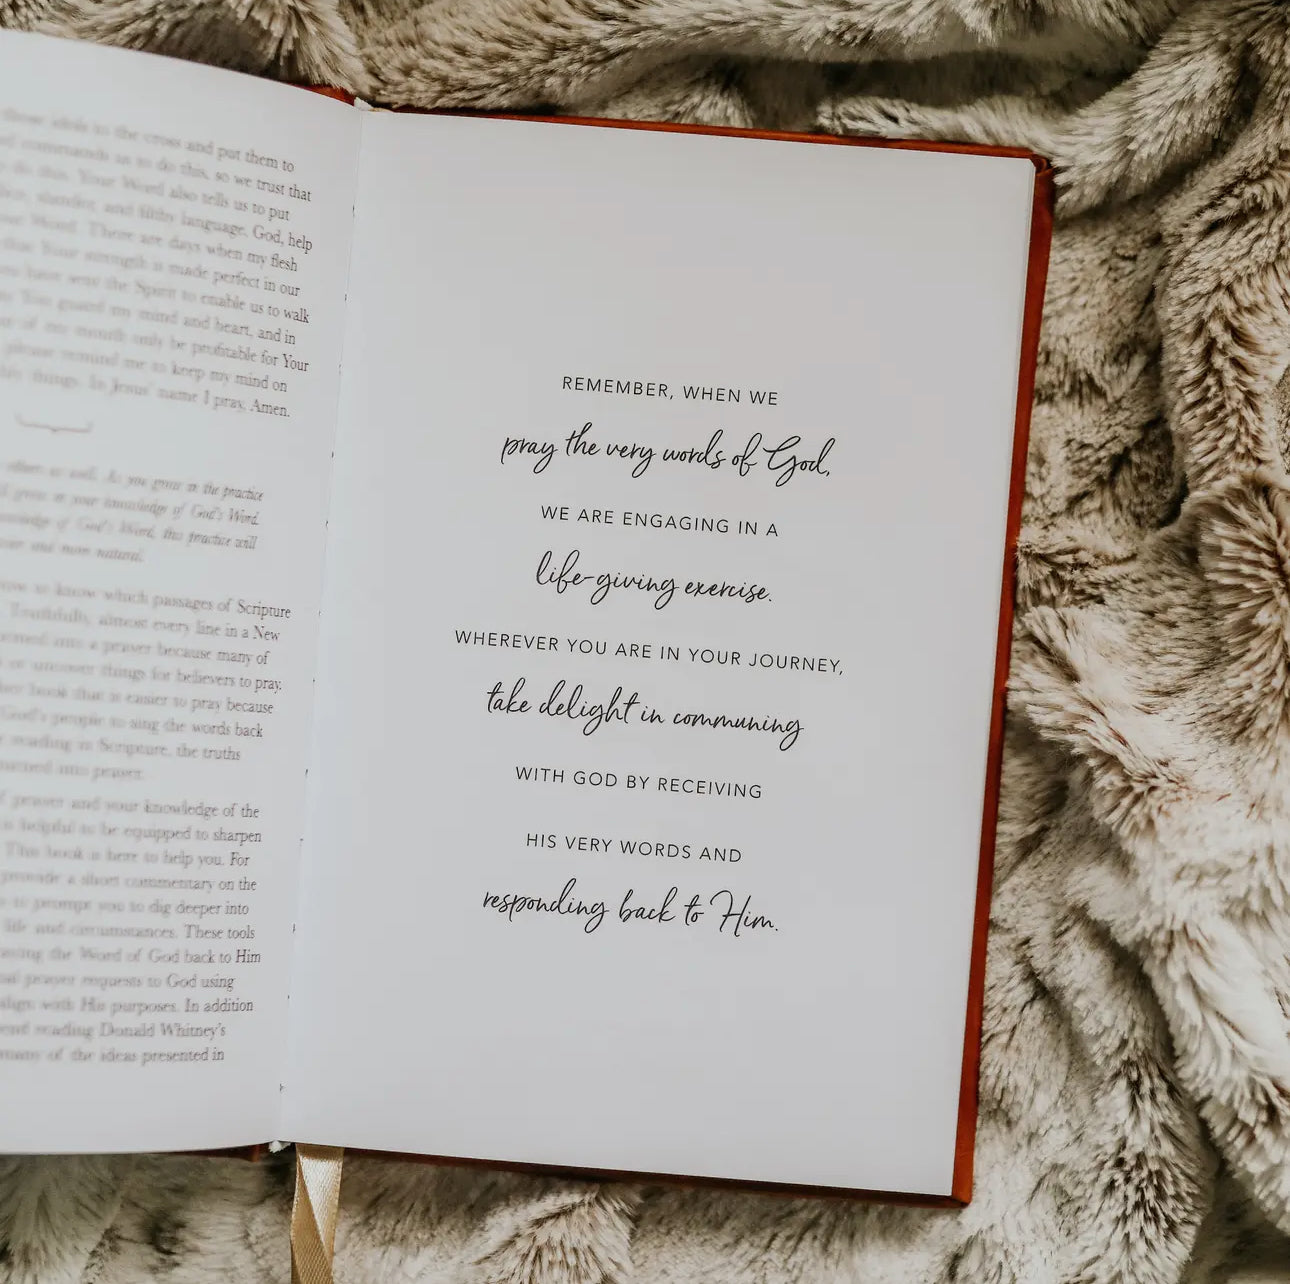 those idols to the cross and put them to
commands us to do this, so we trust that
do this. Your Word also tells us to put
slander, and filthy language. God, help
Word. There are days when my flesh
that Your strength is made perfect in our
have sent the Spirit to enable us to walk
You guard my mind and heart, and in
of my mouth only be profitable for Your
please remind me to keep my mind on
things. In Jesus' name I pray. Amen.
as well. As you grow in the practice
grow in your knowledge of God's Word.
knowledge of God's Word, this practice will
and more natural.
to know which passages of Scripture
Truthfully, almost every line in a New
turned into a prayer because many of
or uncover things for believers to pray.
book that is easier to pray because
God's people to sing the words back
reading in Scripture, the truths
turned into prayer.
prayer and your knowledge of the
is helpful to be equipped to sharpen
This book is here to help you. For
provide a short commentary on the
to prompt you to dig deeper into
life and circumstances. These tools
the Word of God back to Him
prayer requests to God using
align with His purposes. In addition
reading Donald Whitney's
many of the ideas presented in
REMEMBER, WHEN WE
pray the very words of God,
WE ARE ENGAGING IN A
life-giving exercise.
WHEREVER YOU ARE IN YOUR JOURNEY,
take delight in communing
WITH GOD BY RECEIVING
HIS VERY WORDS AND
responding back to Him.